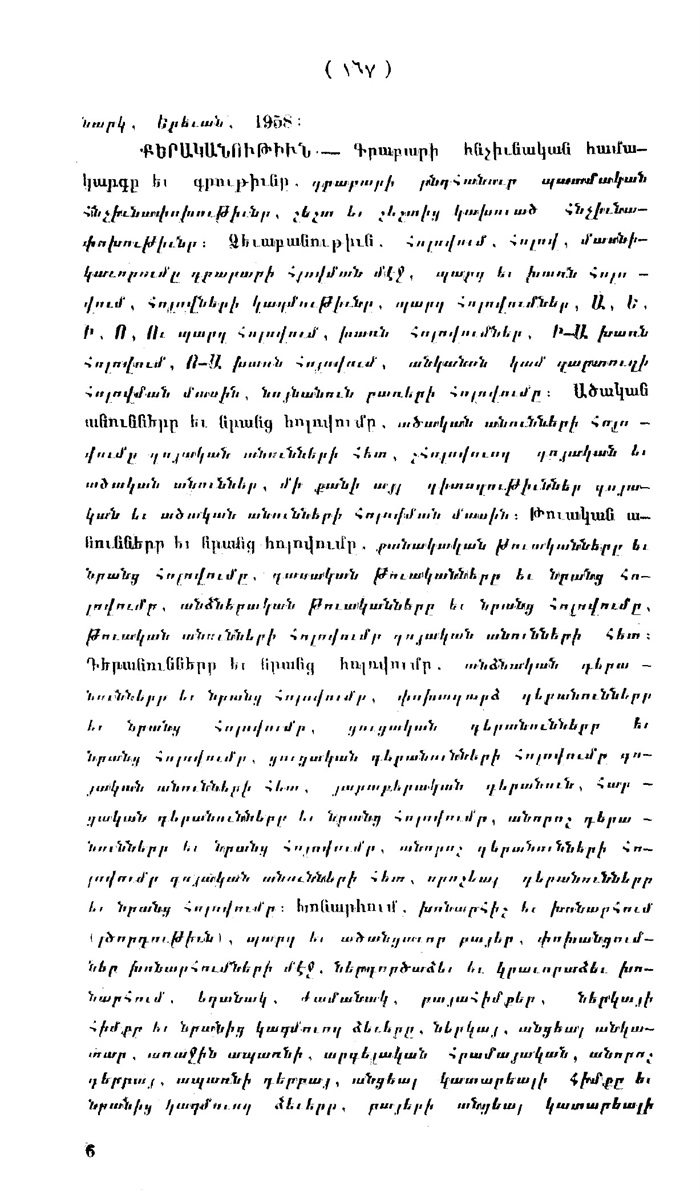 ( ١٦٧ )
նարկ, Երեւան, 1958:
ՔԵՐԱԿԱՆՈՒԹԻՒՆ.— Գրաբարի հնչիւնական համա–
կարգը եւ գրութիւնը, գրաբարի ընդհանուր պատմական
հնչիւնափոխութիւնը, շեշտ եւ շեշտից կախուած հնչիւնա–
փոխութիւնը: Ձեւաբանութիւն, հոլովում, հոլով, մասնի–
կաւորումը գրաբարի հլովման մէջ, պարզ եւ խառն հոլո –
վում, հոլովների կազմութիւնը, պարզ հոլովումներ, Ա, Ե,
Ի, Ո, Ու պարզ հոլովում, խառն հոլովումներ, Ի–Ա խառն
հոլովում, Ո–Ա խառն հոլովում, անկանոն կամ զարտուղի
հոլովման մասին, նոյնանուն բառերի հոլովումը: Ածական
անունները եւ նրանց հոլովումը, ածական անունների հոլո –
վումը գոյական անունների հետ, չհոլովուող գոյական եւ
ածական անուններ, մի քանի այլ դիտողութիւններ գոյա–
կան եւ ածական անունների հոլովման մասին: Թուական ա–
նունները եւ նրանց հոլովումը, քանակական թուականները եւ
նրանց հոլովումը, դասական թուականները եւ նրանց հո–
լովումը, անձներական թուականները եւ նրանց հոլովումը,
թուական անունների հոլովումը գոյական անունների հետ:
Դերանունները եւ նրանց հոլովումը, անձնական դերա –
նունները եւ նրանց հոլովումը, փոխադարձ դերանունները
եւ նրանց հոլովումը, ցուցական դերանունները եւ
նրանց հոլովումը, ցուցական դերանունների հոլովումը գո–
յական անունների հետ, յարաբերական դերանուն, հար –
ցական դերանունները եւ նրանց հոլովումը, անորոշ դերա –
նունները եւ նրանց հոլովումը, անորոշ դերանունների հո–
լովումը գոյական անունների հետ, որոշեալ դերանունները
եւ նրանց հոլովումը: Խոնարհում, խոնարհիչ եւ խոնարհում
(լծորդութիւն), պարզ եւ ածանցաւոր բայեր, փոխանցում–
ներ խոնարհումների մէջ, ներգործաձեւ եւ կրաւորաձեւ խո–
նարհում, եղանակ, ժամանակ, բայահիմքեր, ներկայի
հիմքը եւ նրանից կազմուող ձեւերը, ներկայ, անցեալ անկա–
տար, առաջին ապառնի, արգելական հրամայական, անորոշ
դերբայ, ապառնի դերբայ, անցեալ կատարեալի հիմքը եւ
նրանից կազմուող ձեւերը, բայերի անցեալ կատարեալի
6